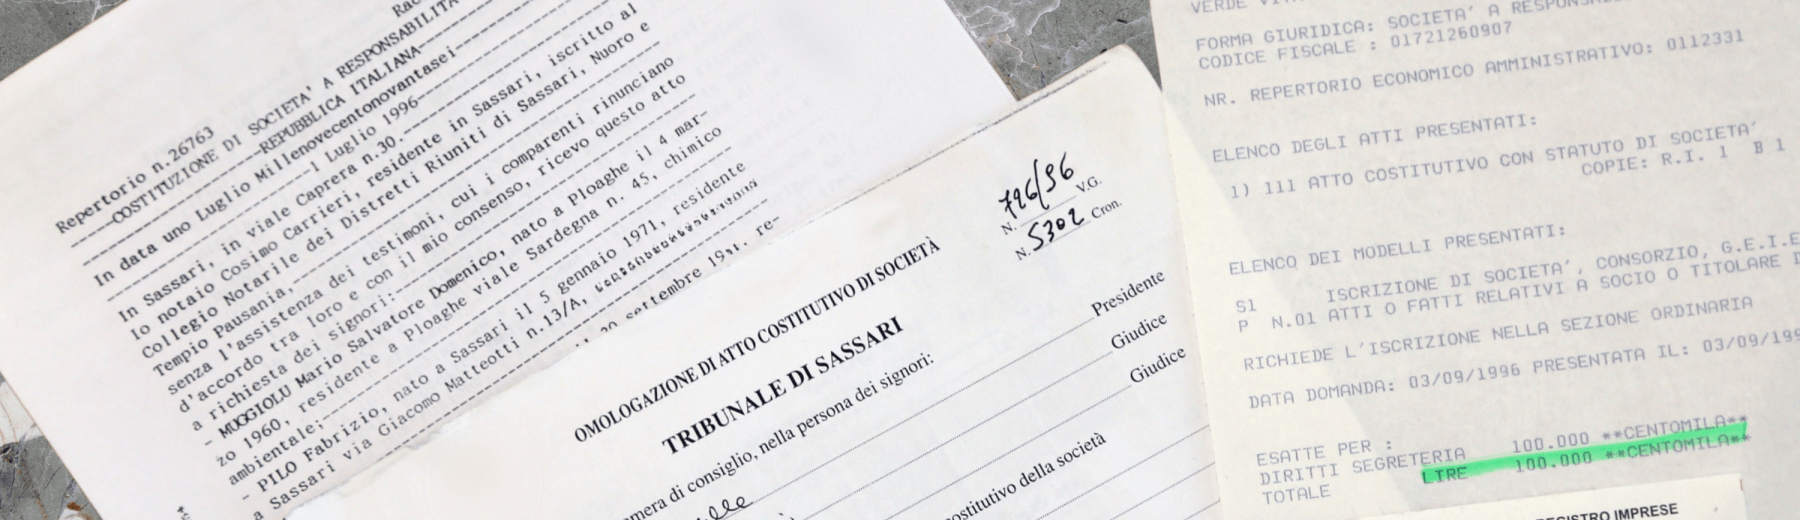 Repertorio n.26763
COSTITUZIONE DI SOCIETA' A RESPONSABILITA'
REPUBBLICA ITALIANA
In data uno Luglio Millenovecentonovantasei
1 Luglio 1996
In Sassari, in viale Caprera n.30.
lo notaio Cosimo Carrieri, residente in Sassari, iscritto al
Collegio Notarile dei Distretti Riuniti di Sassari, Nuoro e
Tempio Pausania,
senza l'assistenza dei testimoni, cui i comparenti rinunciano
d'accordo tra loro e con il mio consenso, ricevo questo atto
a richiesta dei signori:
- MUGGIOLU Mario Salvatore Domenico, nato a Ploaghe il 4 mar-
zo 1960, residente a Ploaghe viale Sardegna n. 45, chimico
ambientale;
- PILO Fabrizio, nato a Sassari il 5 gennaio 1971, residente
a Sassari via Giacomo Matteotti n.13/A,
settembre re-
796/96
N. V.G.
5302
N. Cron.
OMOLOGAZIONE DI ATTO COSTITUTIVO DI SOCIETÀ
TRIBUNALE DI SASSARI
di consiglio, nella persona dei signori:
Presidente
Giudice
Giudice
costitutivo della società
VERDE
FORMA GIURIDICA: SOCIETA' A
CODICE FISCALE : 01721260907
NR. REPERTORIO ECONOMICO AMMINISTRATIVO: 0112331
ELENCO DEGLI ATTI PRESENTATI:
1) 111 ATTO COSTITUTIVO CON STATUTO DI SOCIETA'
COPIE: R.I. 1 B 1
ELENCO DEI MODELLI PRESENTATI:
S1 ISCRIZIONE DI SOCIETA', CONSORZIO, G.E.I.E
P N.01 ATTI O FATTI RELATIVI A SOCIO O TITOLARE D
RICHIEDE L'ISCRIZIONE NELLA SEZIONE ORDINARIA
DATA DOMANDA: 03/09/1996 PRESENTATA IL: 03/09/199
ESATTE PER :
DIRITTI SEGRETERIA 100.000 **CENTOMILA**
TOTALE LIRE 100.000 **CENTOMILA**
REGISTRO IMPRESE